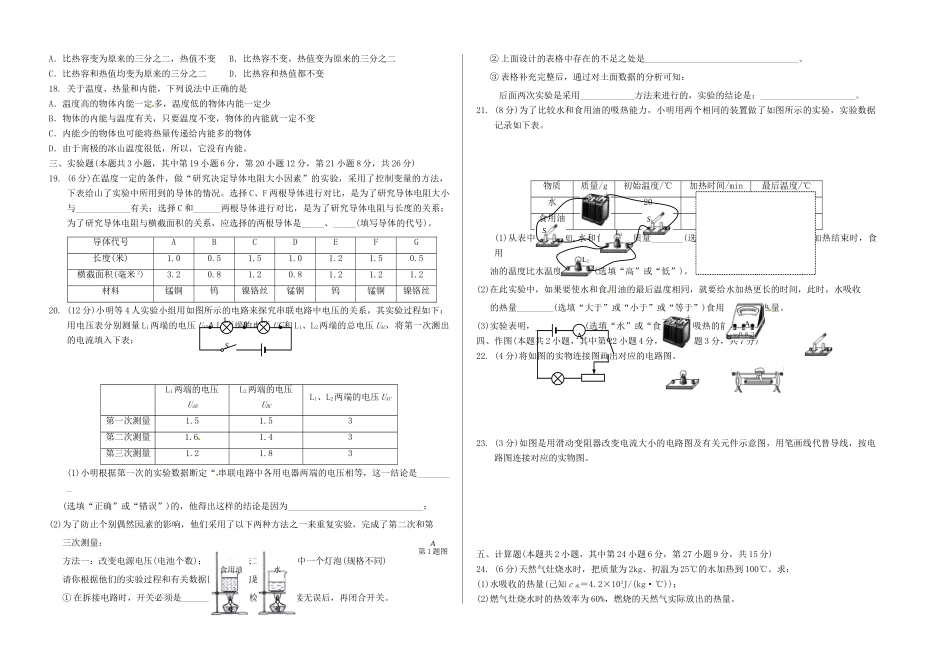 A．比热容变为原来的三分之二，热值不变　B．比热容不变，热值变为原来的三分之二
C．比热容和热值均变为原来的三分之二　D．比热容和热值都不变
18. 关于温度、热量和内能，下列说法中正确的是
A．温度高的物体内能一定多，温度低的物体内能一定少
B．物体的内能与温度有关，只要温度不变，物体的内能就一定不变
C．内能少的物体也可能将热量传递给内能多的物体
D．由于南极的冰山温度很低，所以，它没有内能。
三、实验题(本题共 3 小题，其中第 19 小题 6 分，第 20 小题 12 分，第 21 小题 8 分，共 26 分)
19. (6 分)在温度一定的条件，做“研究决定导体电阻大小因素”的实验，采用了控制变量的方法，
下表给出了实验中所用到的导体的情况。选择 C、F 两根导体进行对比，是为了研究导体电阻大小
与__________有关；选择 C 和_____两根导体进行对比，是为了研究导体电阻与长度的关系；
为了研究导体电阻与横截面积的关系，应选择的两根导体是____、____(填写导体的代号)。
导体代号 A B C D E F G
长度(米) 1.0 0.5 1.5 1.0 1.2 1.5 0.5
横截面积(毫米²) 3.2 0.8 1.2 0.8 1.2 1.2 1.2
材料 锰铜 钨 镍铬丝 锰铜 钨 锰铜 镍铬丝
20. (12 分)小明等 4 人实验小组用如图所示的电路来探究串联电路中电压的关系，其实验过程如下：
用电压表分别测量 L₁两端的电压 U 两端的电 和 L₁、L₂两端的总电压 U_AC，将第一次测出
的电流填入下表：
S
L₁两端的电压 U_AB L₂两端的电压 U_BC L₁、L₂两端的电压 U_AC
第一次测量 1.5 1.5 3
第二次测量 1.6 1.4 3
第三次测量 1.2 1.8 3
(1)小明根据第一次的实验数据断定“串联电路中各用电器两端的电压相等，这一结论是______
_
(选填“正确”或“错误”)的，他得出这样的结论是因为__________________________；
(2)为了防止个别偶然因素的影响，他们采用了以下两种方法之一来重复实验，完成了第二次和第
三次测量：
A
第 1 题图
方法一：改变电源电压(电池个数)； 中一个灯泡(规格不同)
请你根据他们的实验过程和有关数据
食用油 水
①在拆接电路时，开关必须是_____ 检 接无误后，再闭合开关。
②上面设计的表格中存在的不足之处是____________________________。
③表格补充完整后，通过对上面数据的分析可知：
后面两次实验是采用__________方法来进行的，实验的结论是：__________________。
21. (8 分)为了比较水和食用油的吸热能力，小明用两个相同的装置做了如图所示的实验，实验数据
记录如下表。
物质 质量/g 初始温度/℃ 加热时间/min 最后温度/℃
水 20
食用油
S
S₁
L₁
(1)从表中 水和 质量______(选 加热结束时，食
用
油的温度比水温度 (选填“高”或“低”)。
(2)在此实验中，如果要使水和食用油的最后温度相同，就要给水加热更长的时间，此时，水吸收
的热量_______(选填“大于”或“小于”或“等于”)食用 热量。
(3)实验表明， (选填“水”或“食 吸热的能
四、作图(本题共 2 小题，其中第 22 小题 4 分， 题 3 分，共 7 分)
22. (4 分)将如图的实物连接图画出对应的电路图。
23. (3 分)如图是用滑动变阻器改变电流大小的电路图及有关元件示意图，用笔画线代替导线，按电
路图连接对应的实物图。
五、计算题(本题共 2 小题，其中第 24 小题 6 分，第 27 小题 9 分，共 15 分)
24. (6 分)天然气灶烧水时，把质量为 2kg、初温为 25℃的水加热到 100℃。求：
(1)水吸收的热量(已知 c水＝4.2×10³J/(kg·℃))；
(2)燃气灶烧水时的热效率为 60%，燃烧的天然气实际放出的热量。